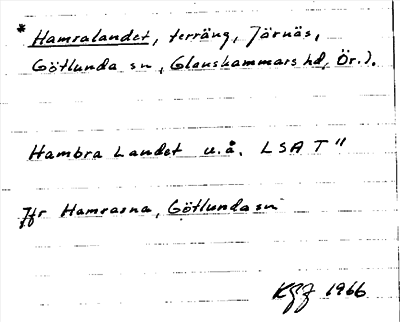 * Hamralandet, terräng, Jörnäs,
Götlunda sn, Glanshammars hd, Ör.).
Hambra Landet u.å. LSA T"
Jfr Hamrarna, Götlunda sn
1966